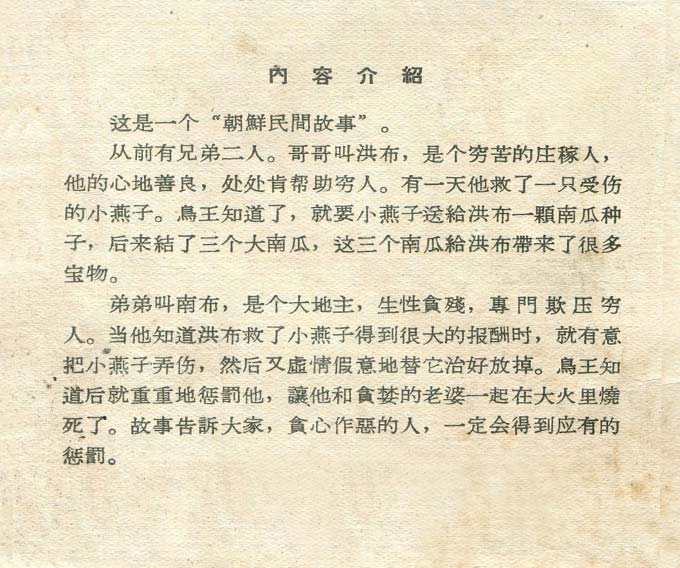 內容介紹
这是一个“朝鮮民間故事”。
从前有兄弟二人。哥哥叫洪布，是个穷苦的庄稼人，
他的心地善良，处处肯帮助穷人。有一天他救了一只受伤
的小燕子。鳥王知道了，就要小燕子送給洪布一顆南瓜种
子，后来結了三个大南瓜，这三个南瓜給洪布帶来了很多
宝物。
弟弟叫南布，是个大地主，生性貪殘，專門欺压穷
人。当他知道洪布救了小燕子得到很大的报酬时，就有意
把小燕子弄伤，然后又虛情假意地替它治好放掉。鳥王知
道后就重重地惩罰他，讓他和貪婪的老婆一起在大火里燒
死了。故事告訴大家，貪心作惡的人，一定会得到应有的
惩罰。